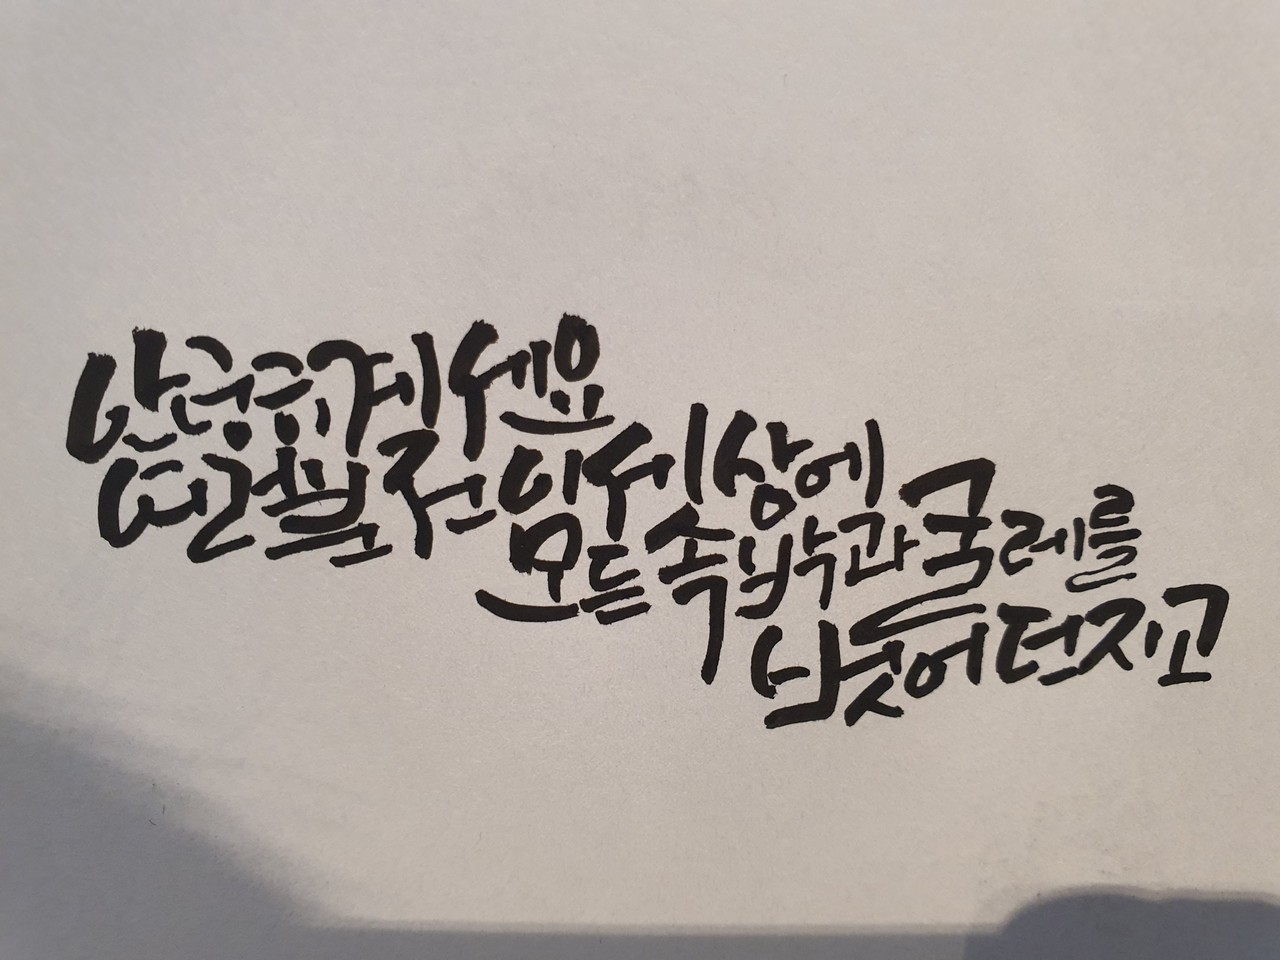 안녕히계세요
여러분 전 이 세상에
모든 속박과 굴레를
벗어 던지고